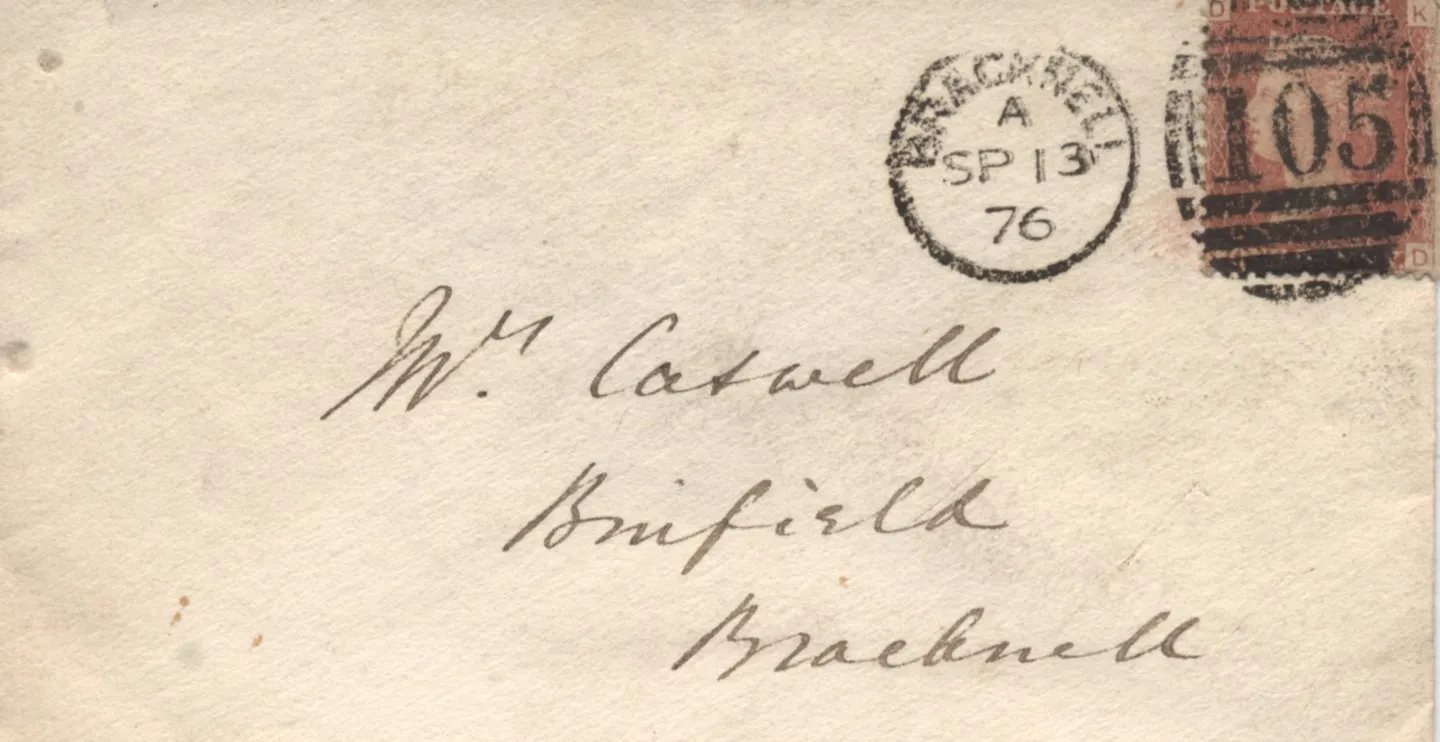 D POSTAGE K
BRACKNELL
A
SP 13
76
105
D
Mrs. Caswell
Binfield
Bracknell